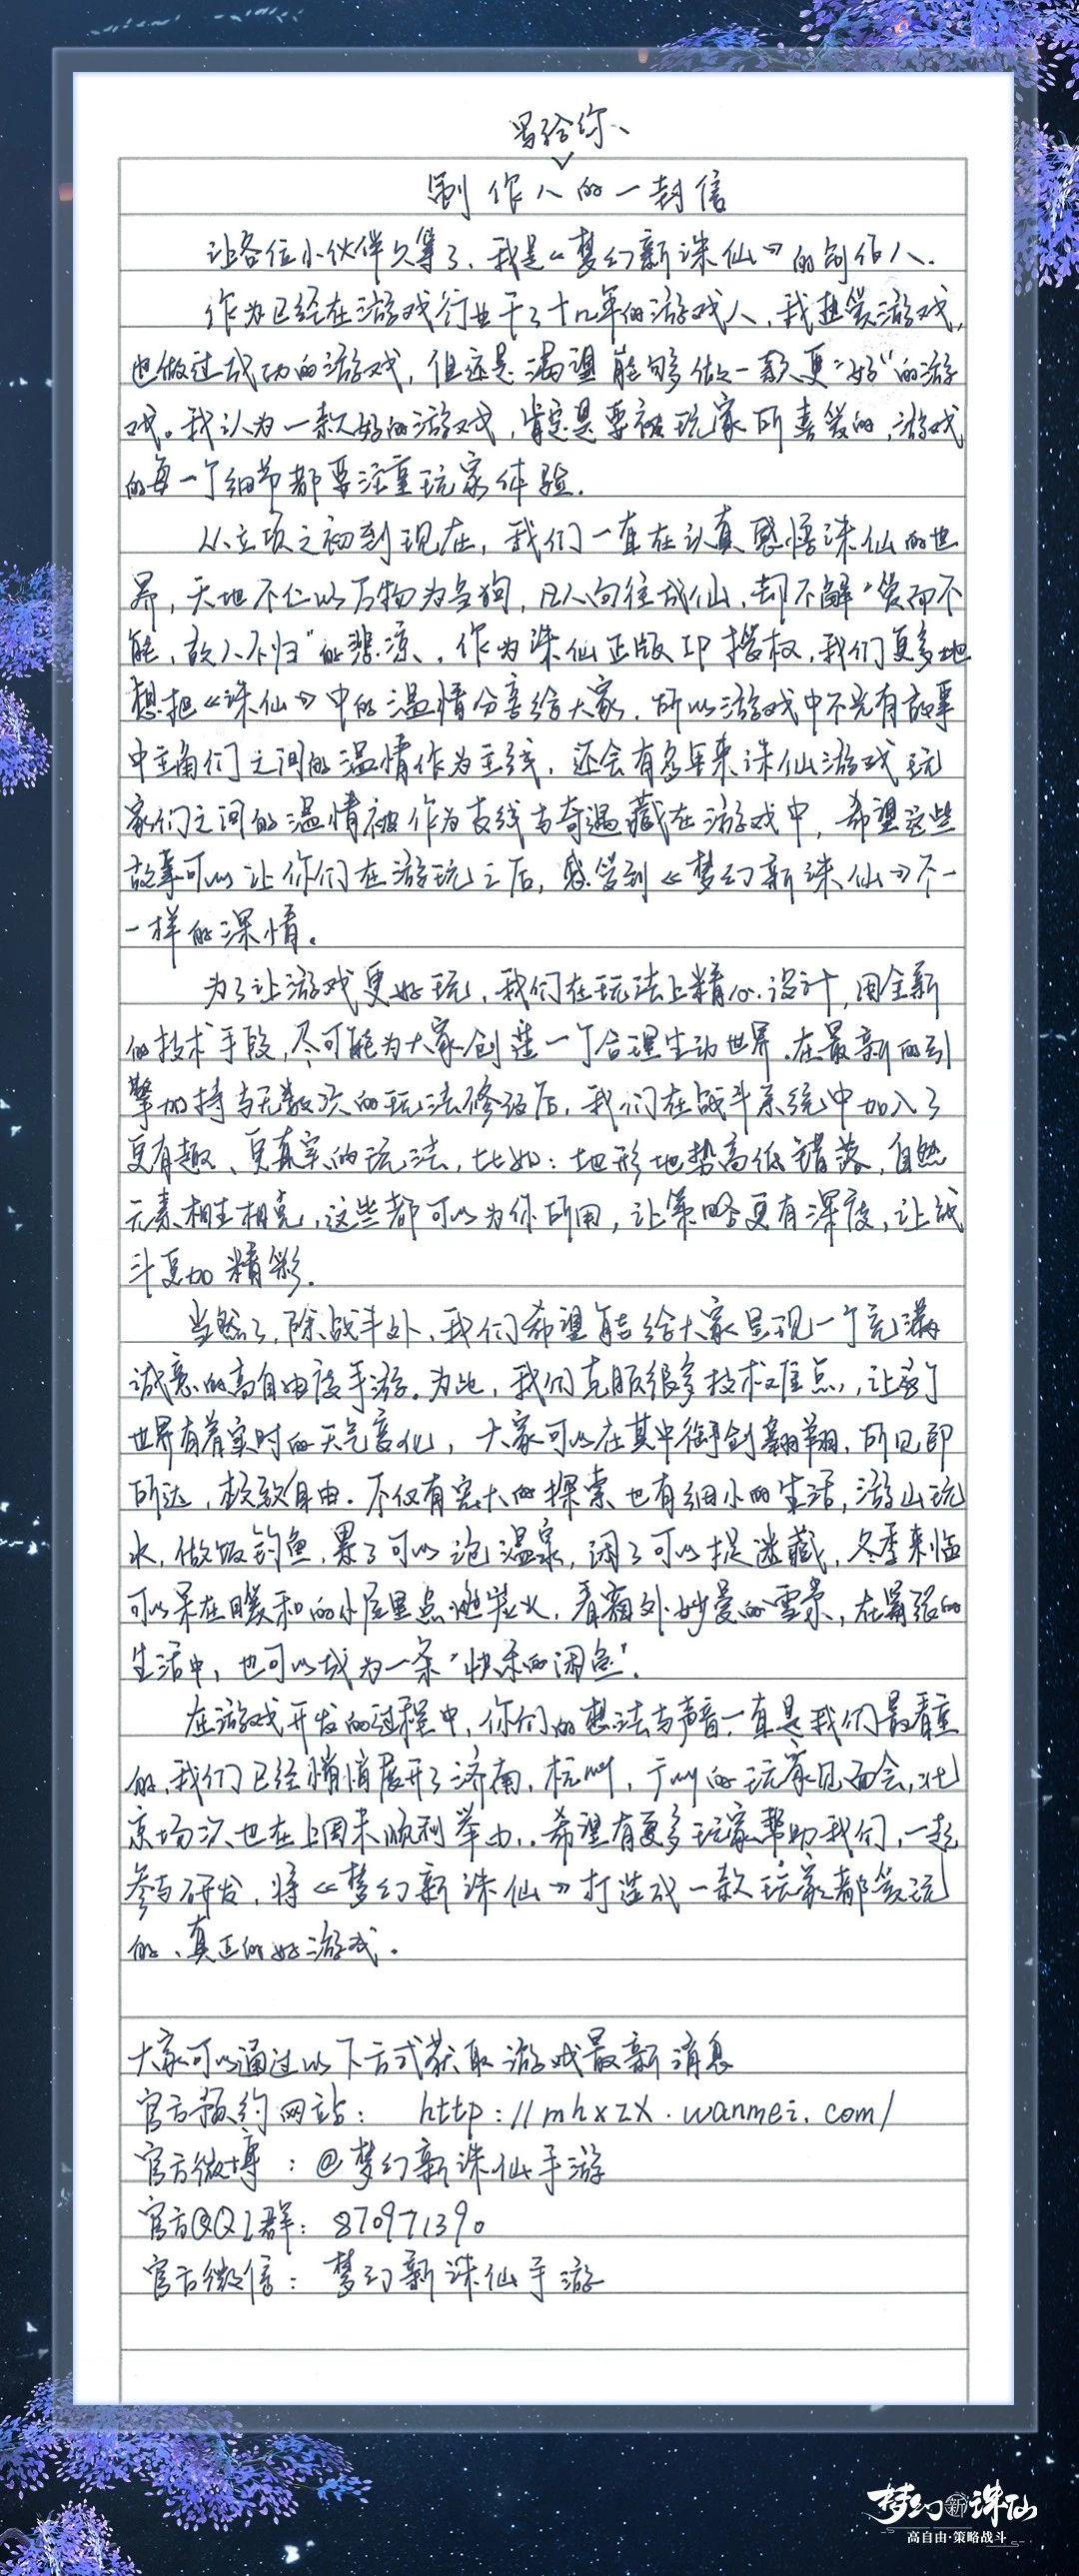 写给你、
制作人的一封信
让各位小伙伴久等了、我是《梦幻新诛仙》的制作人.
作为已经在游戏行业干了十几年的游戏人,我热爱游戏,
也做过成功的游戏,但还是渴望能够做一款更"好"的游
戏。我认为一款好的游戏,肯定是要被玩家所喜爱的,游戏
的每一个细节都要注重玩家体验.
从立项之初到现在,我们一直在认真感悟诛仙的世
界,天地不仁以万物为刍狗,凡人向往成仙,却不解"爱而不
能、故人不归"的悲凉.作为诛仙正版IP授权,我们更多地
想把《诛仙》中的温情分享给大家.所以游戏中不光有故事
中主角们之间的温情作为主线,还会有多年来诛仙游戏玩
家们之间的温情被作为支线与奇遇藏在游戏中,希望这些
故事可以让你们在游玩之后,感受到《梦幻新诛仙》不一
一样的深情。
为了让游戏更好玩,我们在玩法上精心设计,用全新
的技术手段,尽可能为大家创造一个合理生动世界.在最新的引
擎加持与无数次的玩法修改后,我们在战斗系统中加入了
更有趣、更真实的玩法,比如:地形地势高低错落,自然
元素相生相克,这些都可以为你所用,让策略更有深度,让战
斗更加精彩.
当然了,除战斗外,我们希望能给大家呈现一个充满
诚意的高自由度手游.为此,我们克服很多技术难点,让整个
世界有着实时的天气变化,大家可以在其中御剑翱翔,所见即
所达,极致自由.不仅有宏大的探索也有细小的生活,游山玩
水,做饭钓鱼,累了可以泡温泉,闲了可以捉迷藏,冬季来临
可以呆在暖和的小屋里点燃柴火,看窗外妙曼的雪景,在紧张的
生活中,也可以成为一条"快乐的闲鱼".
在游戏开发的过程中,你们的想法与声音一直是我们最看重
的,我们已经悄悄展开了济南,杭州,广州的玩家见面会,北
京场次也在上周末顺利举办.希望有更多玩家帮助我们,一起
参与研发,将《梦幻新诛仙》打造成一款玩家都爱玩
的、真正的好游戏.
大家可以通过以下方式获取游戏最新消息
官方预约网站: http://mhxzx.wanmei.com/
官方微博:@梦幻新诛仙手游
官方QQ1群:870971390
官方微信:梦幻新诛仙手游
梦幻新诛仙
高自由·策略战斗